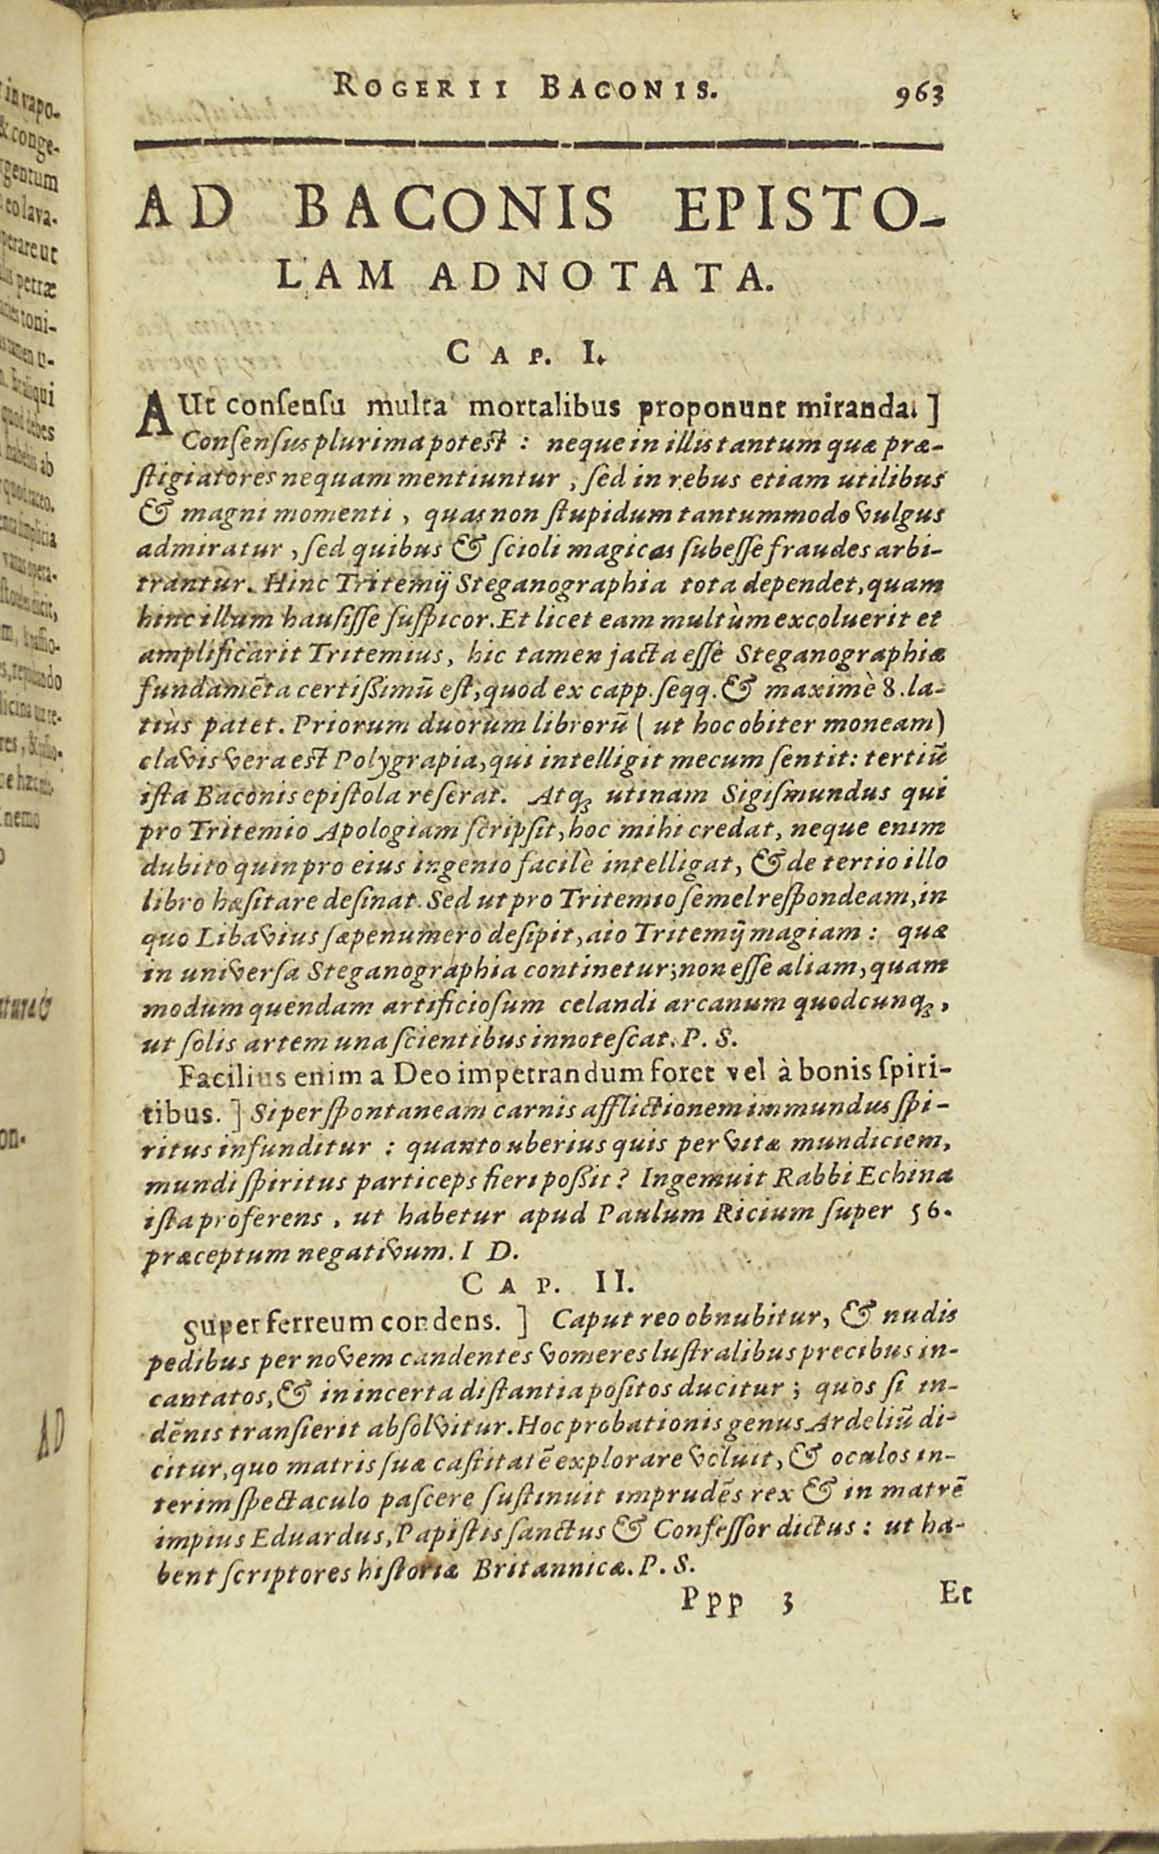 in vapo-
& conge-
gentum
eo lava-
perare ut
petræ
toni-
tamen u-
quod debes
habebis ab
quod taceo.
opera-
nemo
AD
ROGERII BACONIS. 963
AD BACONIS EPISTO-
LAM ADNOTATA.
CAP. I.
AUt conſenſu multa mortalibus proponunt miranda. ]
Conſenſus plurima poteſt : neque in illis tantum quæ præ-
ſtigiatores nequam mentiuntur, ſed in rebus etiam utilibus
& magni momenti, quas non ſtupidum tantummodo vulgus
admiratur, ſed quibus & ſcioli magicas ſubeſſe fraudes arbi-
trantur. Hinc Tritemij Steganographia tota dependet, quam
hinc illum hauſiſſe ſuſpicor. Et licet eam multùm excoluerit et
amplificarit Tritemius, hic tamen jacta eſſe Steganographiæ
fundamēta certiſſimū eſt, quod ex capp. ſeqq. & maximè 8. la-
tiùs patet. Priorum duorum librorū ( ut hoc obiter moneam)
clavis vera eſt Polygrapia, qui intelligit mecum ſentit: tertiū
iſta Baconis epiſtola reſerat. Atqꝫ utinam Sigiſmundus qui
pro Tritemio Apologiam ſcripſit, hoc mihi credat, neque enim
dubito quin pro eius ingenio facilè intelligat, & de tertio illo
libro hæſitare deſinat. Sed ut pro Tritemio ſemel reſpondeam, in
quo Libavius ſæpenumero deſipit, aio Tritemij magiam : quæ
in univerſa Steganographia continetur; non eſſe aliam, quam
modum quendam artificioſum celandi arcanum quodcunqꝫ,
ut ſolis artem una ſcientibus innoteſcat. P. S.
Facilius enim a Deo impetrandum foret vel à bonis ſpiri-
tibus. ] Si per ſpontaneam carnis afflictionem immundus ſpi-
ritus infunditur : quanto uberius quis per vitæ mundiciem,
mundi ſpiritus particeps fieri poſſit ? Ingemuit Rabbi Echina
iſta proferens, ut habetur apud Paulum Ricium ſuper 56.
præceptum negativum. I D.
CAP. II.
Super ferreum cordens. ] Caput reo obnubitur, & nudis
pedibus per novem candentes vomeres luſtralibus precibus in-
cantatos, & in incerta diſtantia poſitos ducitur ; quos ſi in-
dēnis tranſierit abſolvitur. Hoc probationis genus Ardeliū di-
citur, quo matris ſuæ caſtitatē explorare voluit, & oculos in-
terim ſpectaculo paſcere ſuſtinuit imprudēs rex & in matrē
impius Eduardus, Papiſtis ſanctus & Confeſſor dictus : ut ha-
bent ſcriptores hiſtoriæ Britannicæ. P. S.
Ppp 3 Et